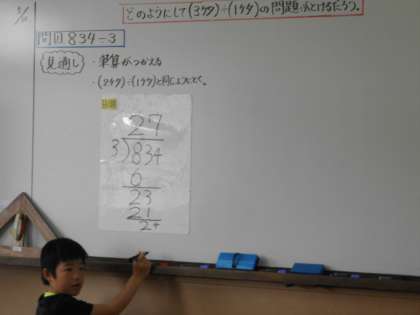 どのようにして(3ケタ)÷(1ケタ)の問題がとけるだろう。
問1 834÷3
見通し
・筆算がつかえる
・(2ケタ)÷(1ケタ)と同じようにとく。
27
3)834
6
23
21
24